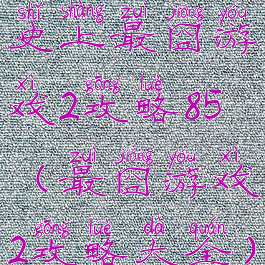 shǐ shàng zuì jiǒng yóu
史上最囧游
xì gōng lüè
戏2攻略85
zuì jiǒng yóu xì
（最囧游戏
gōng lüè dà quán
2攻略大全）